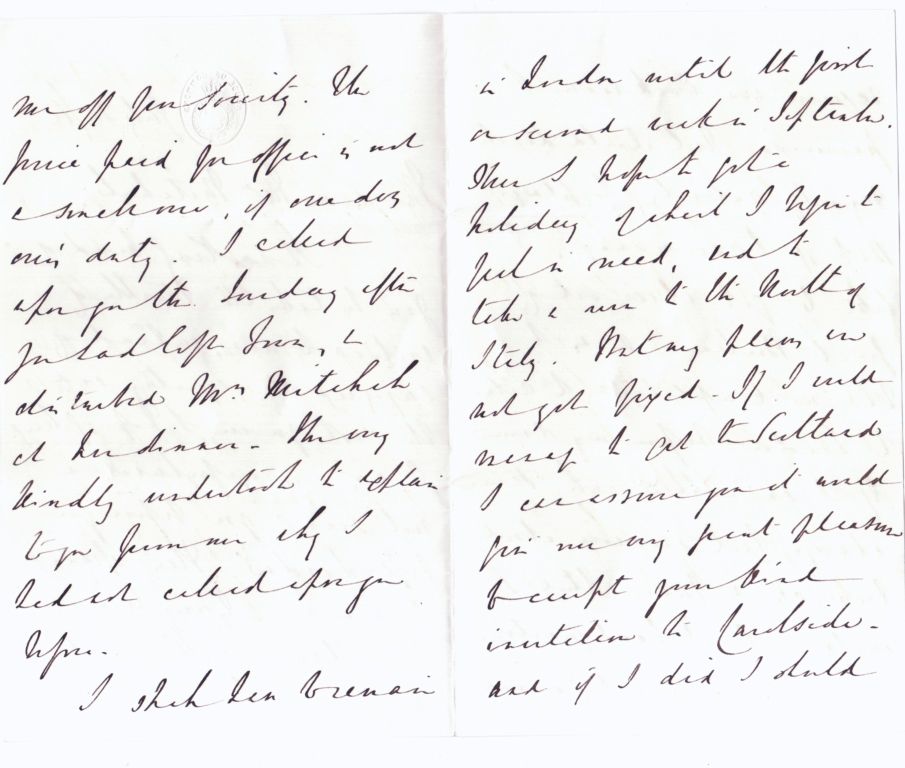 me off from Society. The
price paid for office is not
a small one, if one does
one's duty. I called
upon you the Sunday after
you had left Town, &
disturbed Mrs Mitchell
at her dinner. She very
kindly undertook to explain
to you from me why I
had not called upon you
before.
I shall have to remain
in London until the first
or second week in September.
Then I hope to get a
holiday of which I begin to
feel in need, and to
take a run to the North of
Italy. But my plans are
not yet fixed. If I could
manage to get to Scotland
I can assure you it would
give me very great pleasure
to accept your kind
invitation to
and if I did I should